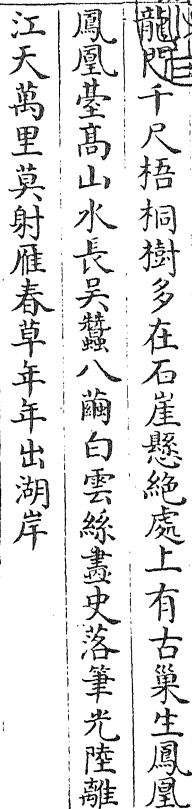 龍門千尺梧桐樹多在石崖懸絶處上有古巢生鳳凰
鳳凰臺髙山水長吴蠶八繭白雲絲畫史落筆光陸離
江天萬里莫射雁春草年年出湖岸